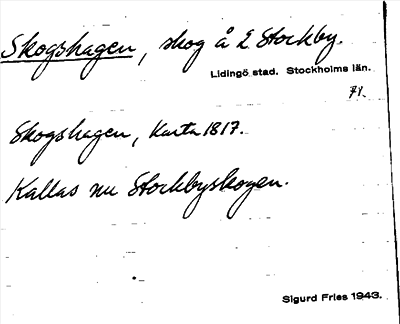 Skogshagen, skog å L Stockby.
Lidingö stad. Stockholms län.
74.
Skogshagen, Karta 1817.
Kallas nu Stockbyskogen.
Sigurd Fries 1943.